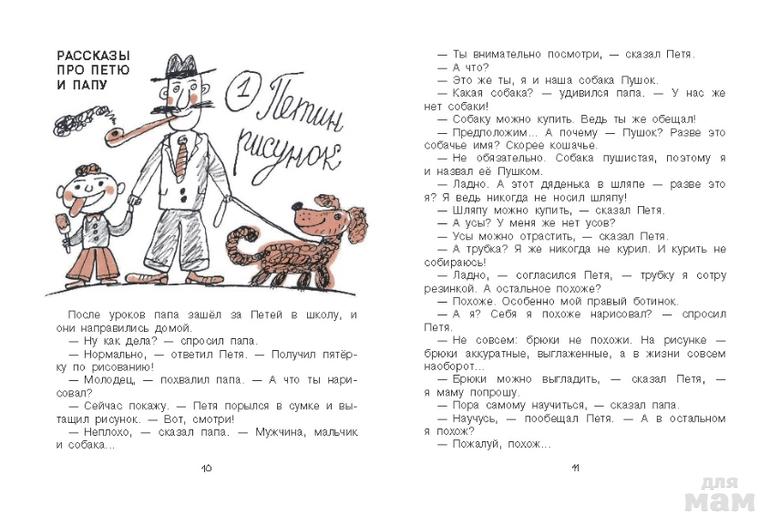 РАССКАЗЫ
ПРО ПЕТЮ
И ПАПУ
1 Петин
рисунок
После уроков папа зашёл за Петей в школу, и
они направились домой.
— Ну как дела? — спросил папа.
— Нормально, — ответил Петя. — Получил пятёр-
ку по рисованию!
— Молодец, — похвалил папа. — А что ты нари-
совал?
— Сейчас покажу. — Петя порылся в сумке и вы-
тащил рисунок. — Вот, смотри!
— Неплохо, — сказал папа. — Мужчина, мальчик
и собака...
10
— Ты внимательно посмотри, — сказал Петя.
— А что?
— Это же ты, я и наша собака Пушок.
— Какая собака? — удивился папа. — У нас же
нет собаки!
— Собаку можно купить. Ведь ты же обещал!
— Предположим... А почему — Пушок? Разве это
собачье имя? Скорее кошачье.
— Не обязательно. Собака пушистая, поэтому я
и назвал её Пушком.
— Ладно. А этот дяденька в шляпе — разве это
я? Я ведь никогда не носил шляпу!
— Шляпу можно купить, — сказал Петя.
— А усы? У меня же нет усов?
— Усы можно отрастить, — сказал Петя.
— А трубка? Я же никогда не курил. И курить не
собираюсь!
— Ладно, — согласился Петя, — трубку я сотру
резинкой. А остальное похоже?
— Похоже. Особенно мой правый ботинок.
— А я? Себя я похоже нарисовал? — спросил
Петя.
— Не совсем: брюки не похожи. На рисунке —
брюки аккуратные, выглаженные, а в жизни совсем
наоборот...
— Брюки можно выгладить, — сказал Петя, —
я маму попрошу.
— Пора самому научиться, — сказал папа.
— Научусь, — пообещал Петя. — А в остальном
я похож?
— Пожалуй, похож...
11
для
мам